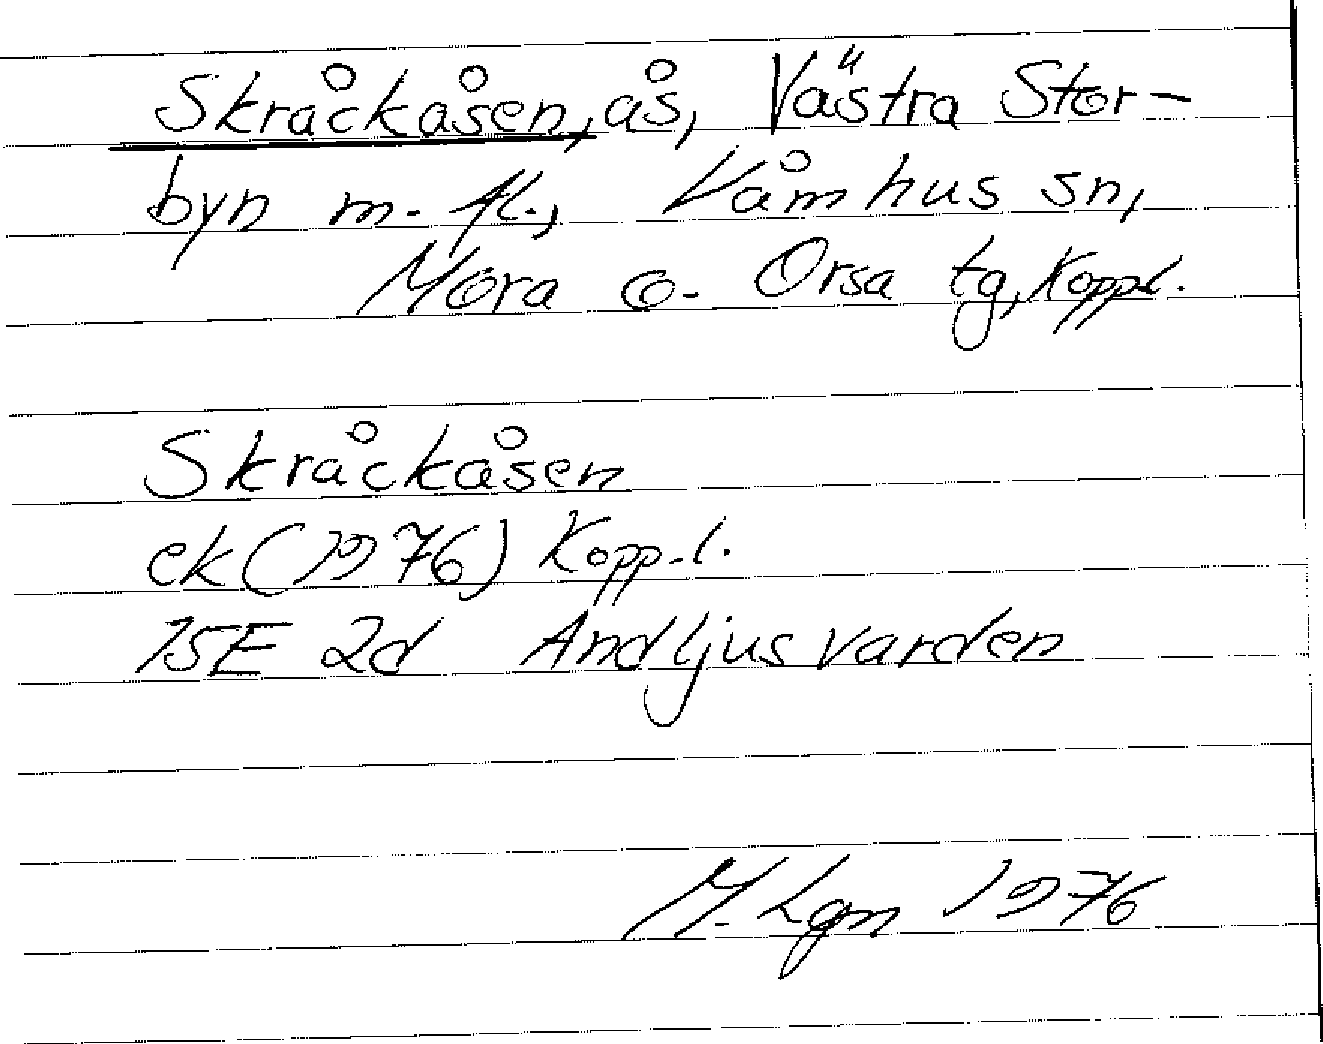 Skråckåsen, ås, Västra Stor-
byn m. fl., Våmhus sn,
Mora o. Orsa tg, Koppl.
Skråckåsen
ek (1976) Kopp.l.
15E 2d Andljusvarden
M. Lgn 1976